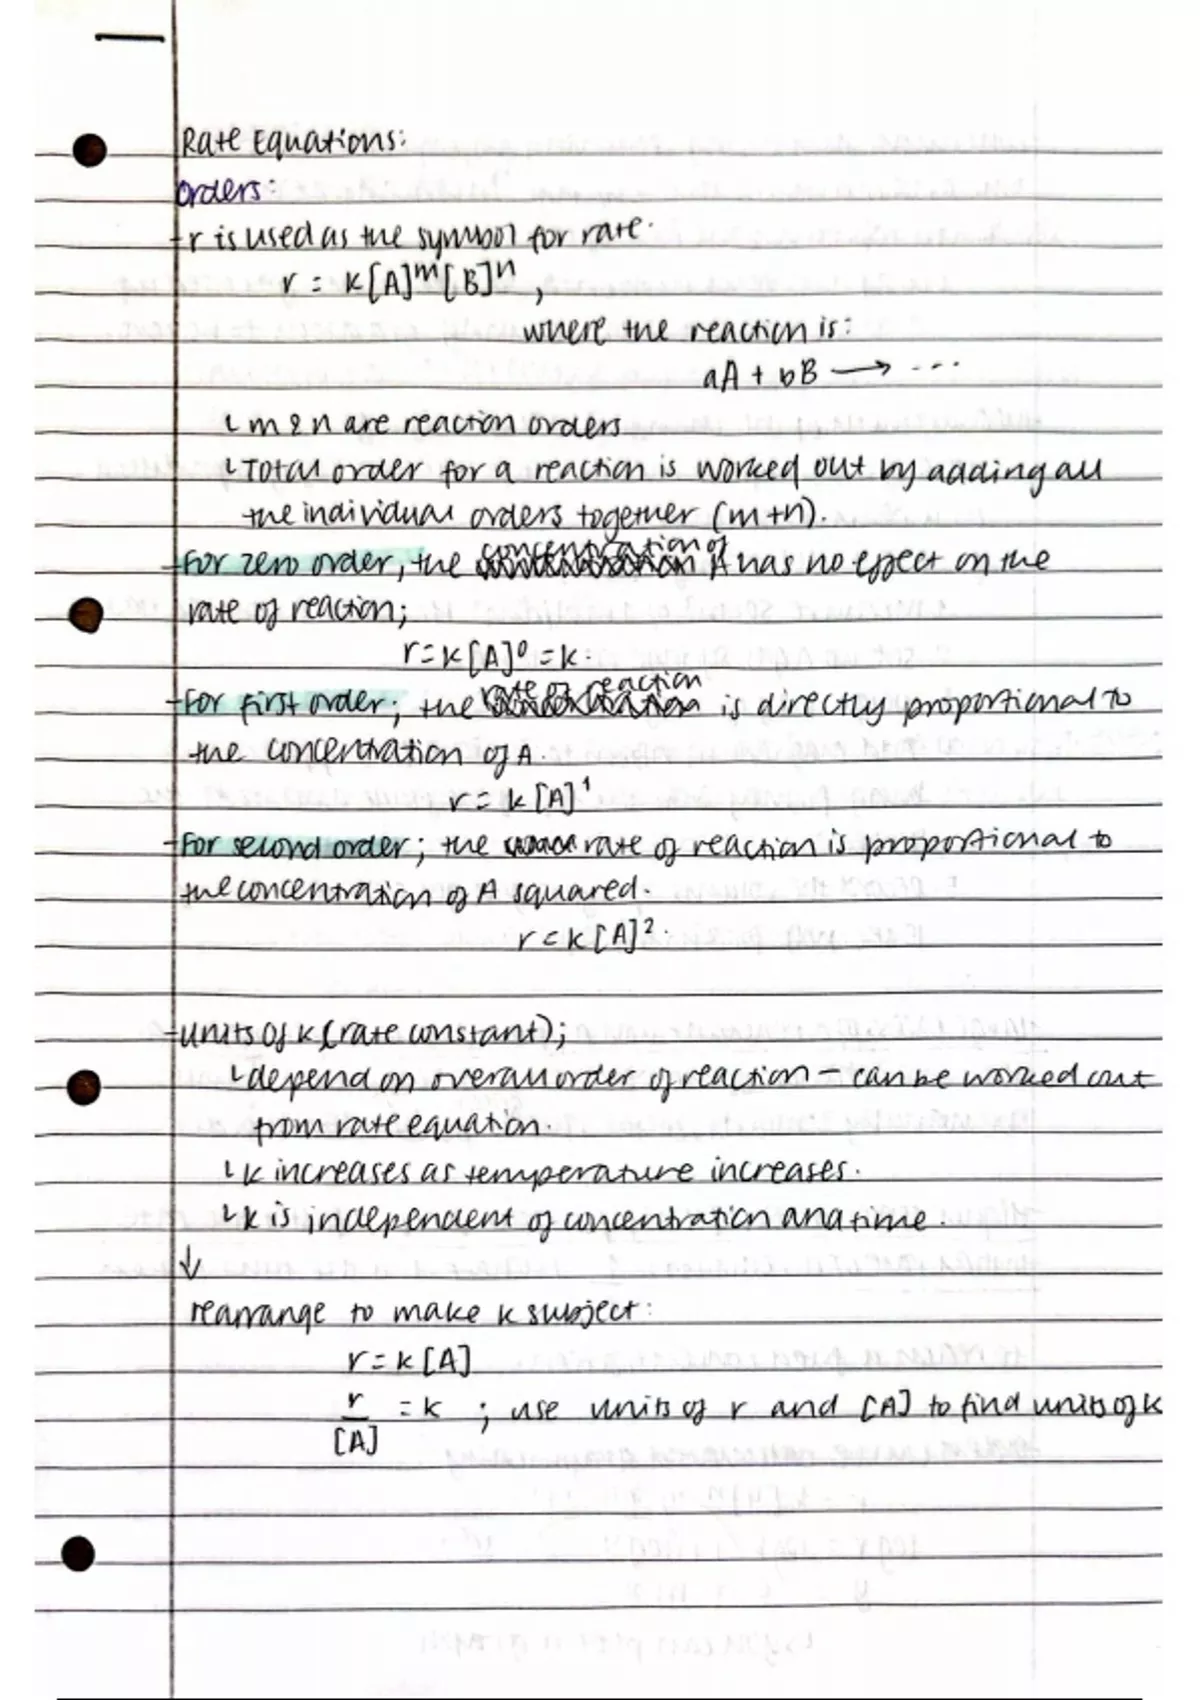 Rate Equations:
Orders:
- r is used as the symbol for rate.
r = k[A]ᵐ[B]ⁿ,
where the reaction is:
aA + bB → ...
↳ m & n are reaction orders
↳ Total order for a reaction is worked out by adding all
the individual orders together (m+n).
- For zero order, the concentration of A has no effect on the
rate of reaction;
r = k[A]⁰ = k.
- For first order; the rate of reaction is directly proportional to
the concentration of A.
r = k[A]¹
- For second order; the rate of reaction is proportional to
the concentration of A squared.
r = k[A]².
- units of k (rate constant);
↳ depend on overall order of reaction – can be worked out
from rate equation.
↳ k increases as temperature increases.
↳ k is independent of concentration and time.
↓
rearrange to make k subject:
r = k[A]
r/[A] = k ; use units of r and [A] to find units of k